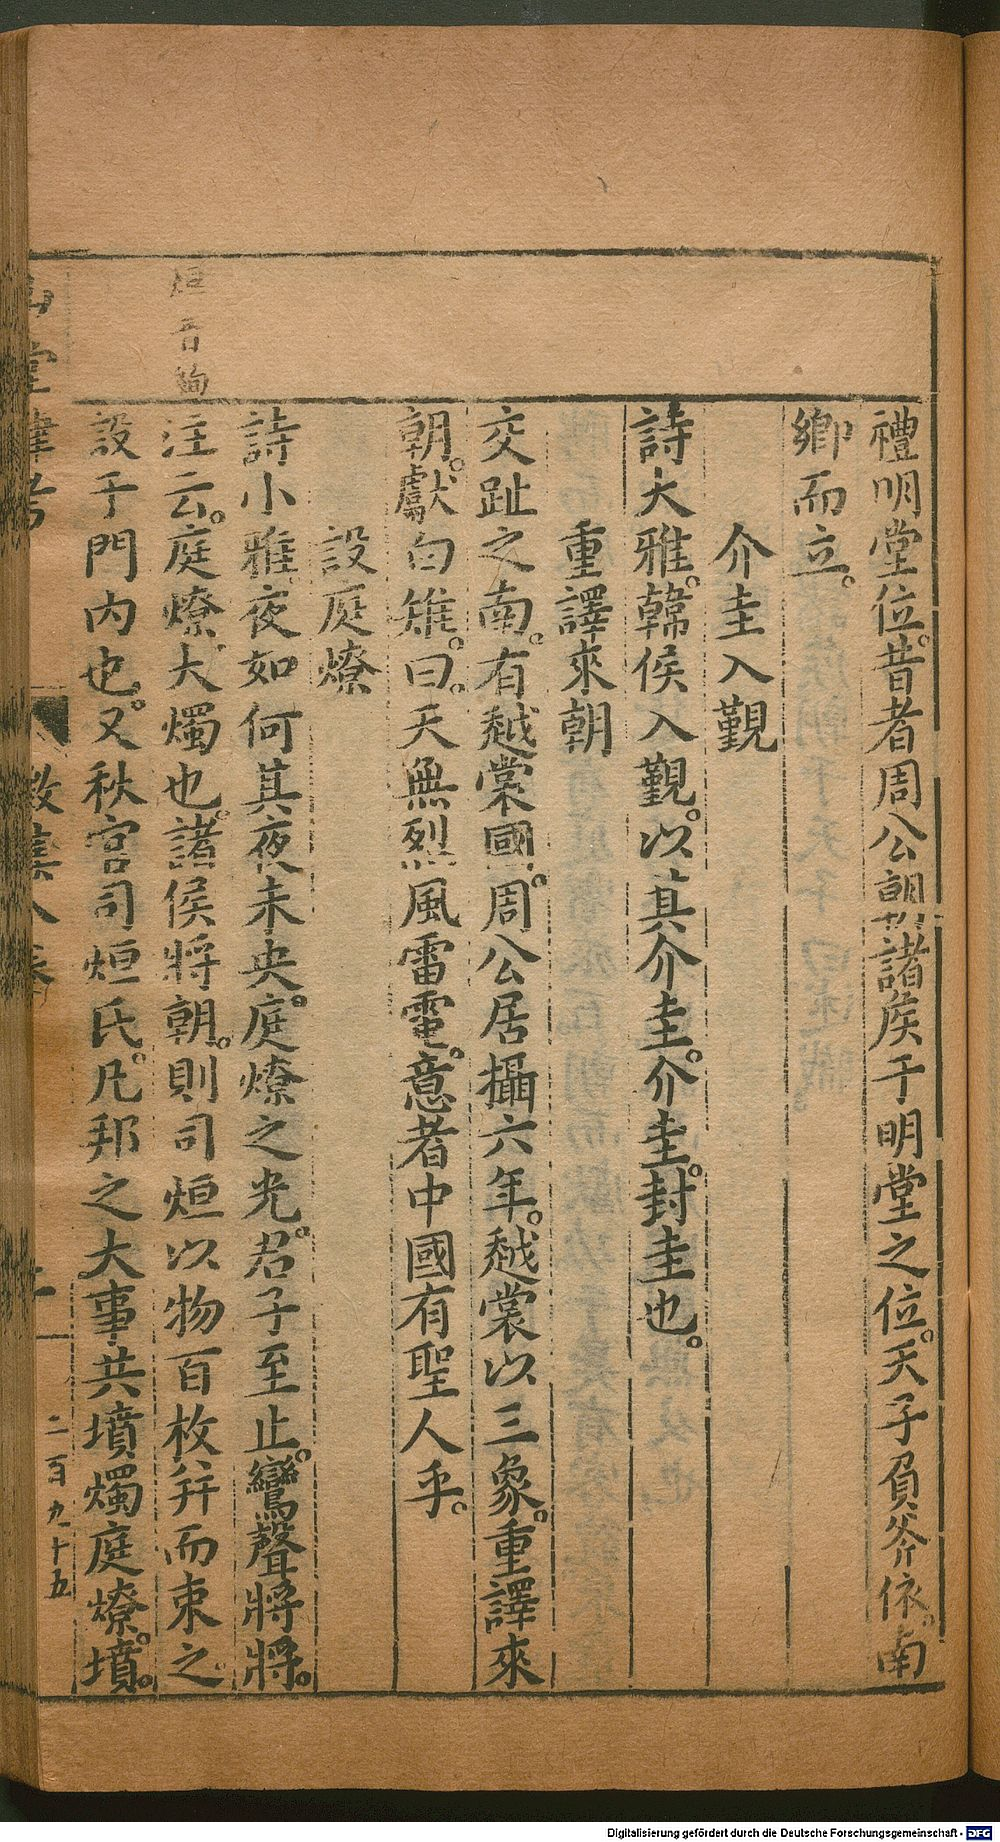 禮明堂位。昔者周公朝諸侯于明堂之位。天子負斧依。南
鄉而立。
介圭入覲
詩大雅。韓侯入覲。以其介圭。介圭。封圭也。
重譯來朝
交趾之南。有越棠國。周公居攝六年。越裳以三象。重譯來
朝。獻白雉。曰。天無烈風雷電。意者中國有聖人乎。
設庭燎
詩小雅夜如何其夜未央。庭燎之光。君子至止。鸞聲將將。
注云。庭燎大燭也。諸侯將朝。則司烜以物百枚并而束之。
設于門内也。又秋官司烜氏。凡邦之大事共墳燭庭燎。墳。
烜音烜
山堂肆考
徵集八卷
二百九十五
Digitalisierung gefördert durch die Deutsche Forschungsgemeinschaft - DFG